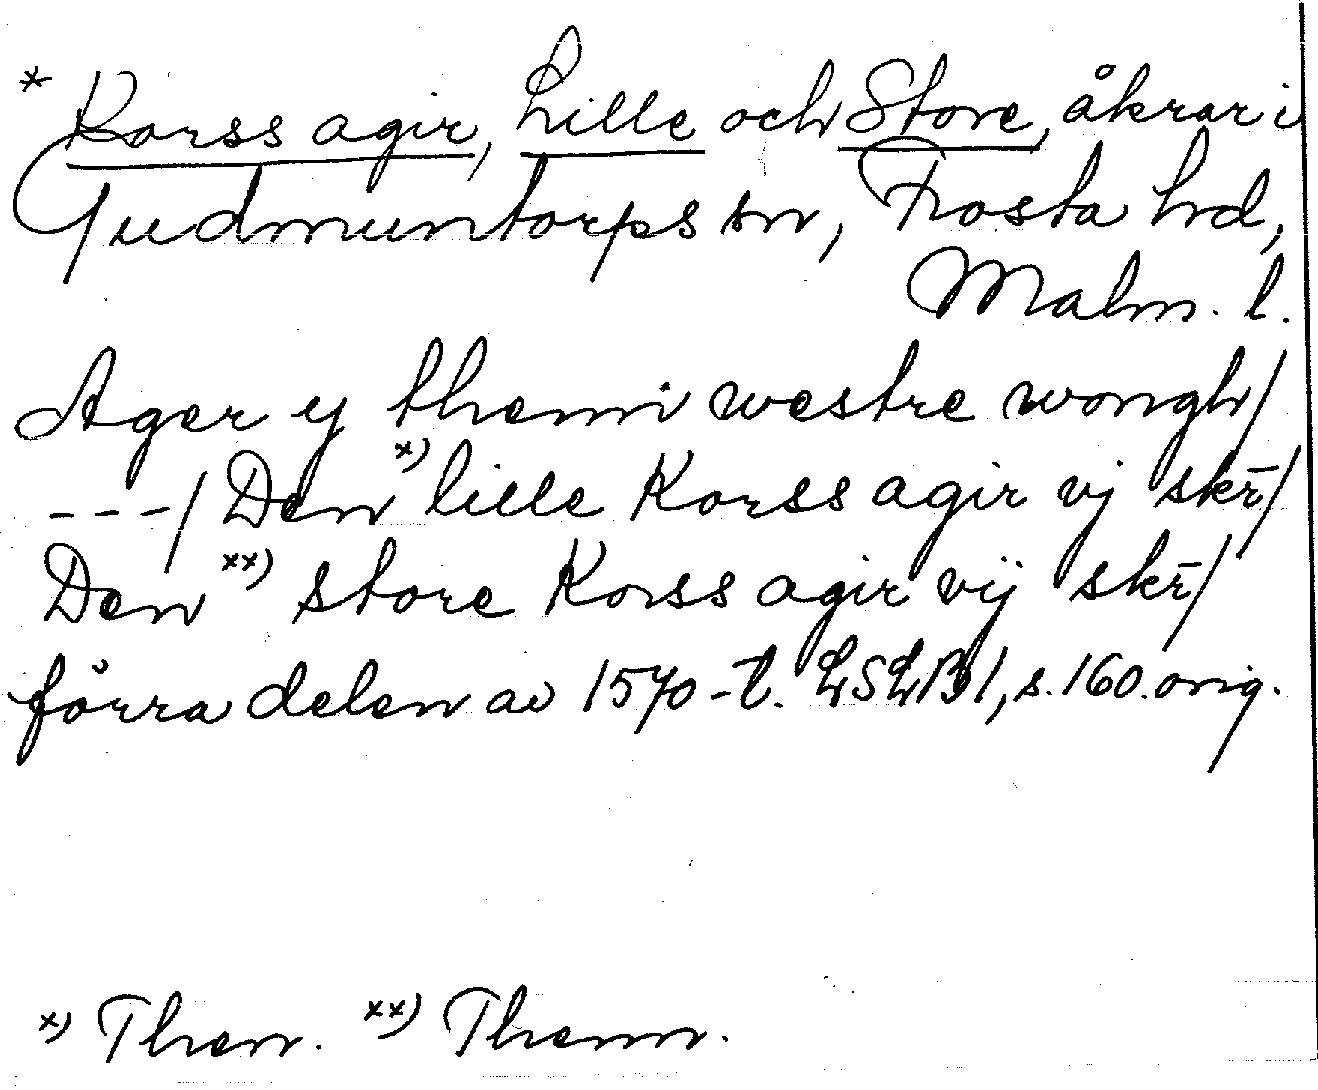 * Korss agir, Lille och Store, åkrar i
Gudmuntorps sn, Frosta hd,
Malm. l.
Ager y thenn westre wongh/
---/ Den x) lille Korss agir vj skr̄/
Den xx) store Korss agir vij skr̄/
förra delen av 1570-t. LSLB 1, s. 160. orig.
x) Then. xx) Thenn.